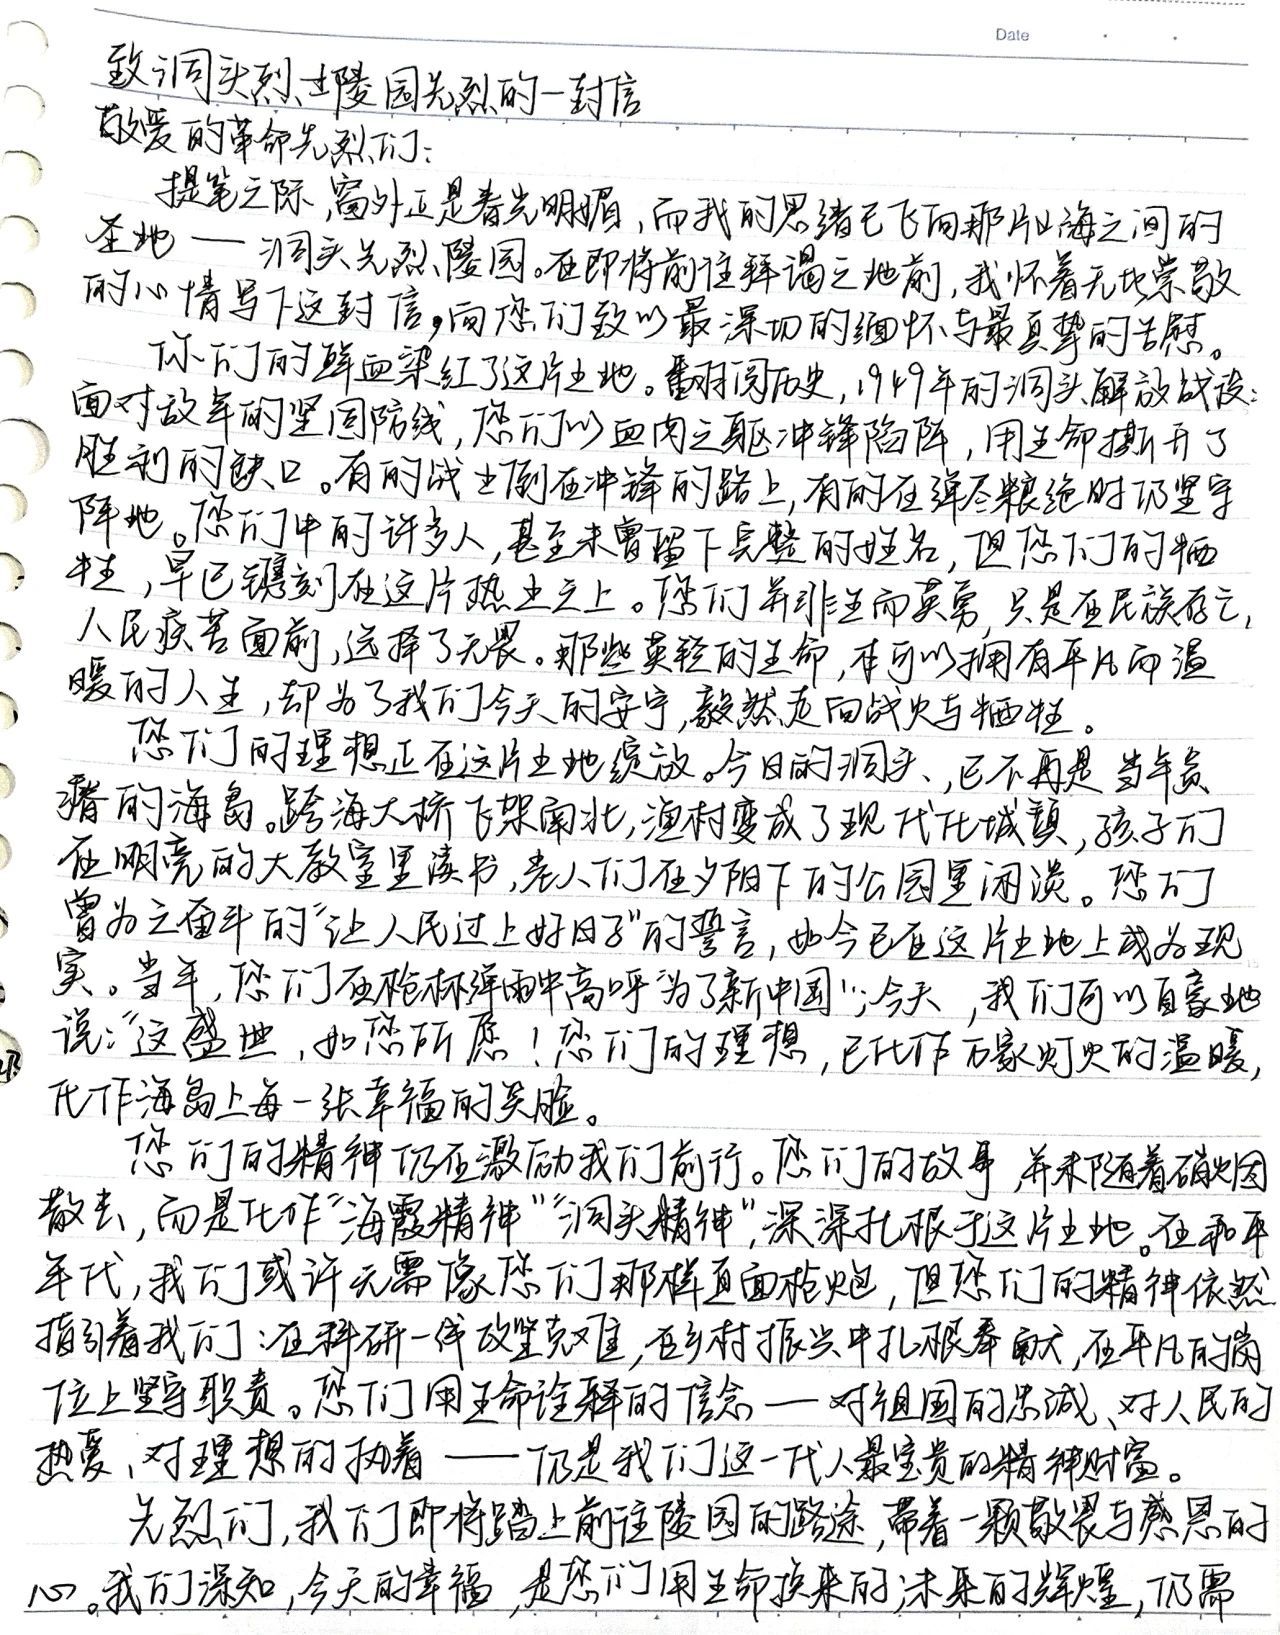 Date
致洞头烈士陵园先烈的一封信
敬爱的革命先烈们:
提笔之际,窗外正是春光明媚,而我的思绪已飞向那片山海之间的
圣地——洞头先烈陵园。在即将前往拜谒之地前,我怀着无比崇敬
的心情写下这封信,向您们致以最深切的缅怀与最真挚的告慰。
你们的鲜血染红了这片土地。翻阅历史,1949年的洞头解放战役:
面对敌军的坚固防线,您们以血肉之躯冲锋陷阵,用生命撕开了
胜利的缺口。有的战士倒在冲锋的路上,有的在弹尽粮绝时仍坚守
阵地。您们中的许多人,甚至未曾留下完整的姓名,但您们的牺
牲,早已镌刻在这片热土之上。您们并非生而英勇,只是在民族存亡,
人民疾苦面前,选择了无畏。那些英轻的生命,本可以拥有平凡而温
暖的人生,却为了我们今天的安宁,毅然走向战火与牺牲。
您们的理想正在这片土地绽放。今日的洞头,已不再是当年贫
瘠的海岛。跨海大桥飞架南北,渔村变成了现代化城镇,孩子们
在明亮的大教室里读书,老人们在夕阳下的公园里闲谈。您们
曾为之奋斗的“让人民过上好日子”的誓言,如今已在这片土地上成为现
实。当年,您们在枪林弹雨中高呼“为了新中国”;今天,我们可以自豪地
说:“这盛世,如您所愿!您们的理想,已化作万家灯火的温暖,
化作海岛上每一张幸福的笑脸。
您们的精神仍在激励我们前行。您们的故事,并未随着硝烟
散去,而是化作“海霞精神”“洞头精神”,深深扎根于这片土地。在和平
年代,我们或许无需像您们那样直面枪炮,但您们的精神依然
指引着我们:在科研一线攻坚克难,在乡村振兴中扎根奉献,在平凡的岗
位上坚守职责。您们用生命诠释的信念——对祖国的忠诚、对人民的
热爱、对理想的执着——仍是我们这一代人最宝贵的精神财富。
先烈们,我们即将踏上前往陵园的路途,带着一颗敬畏与感恩的
心。我们深知,今天的幸福,是您们用生命换来的;未来的辉煌,仍需